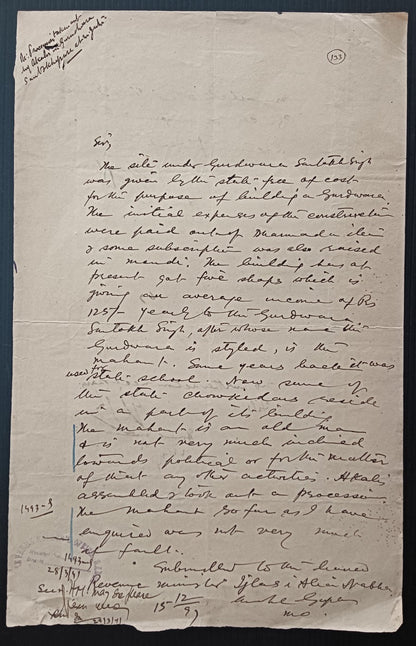 Re Procession taken out
by Akalis
Gurdwara
(193)
Sir,
The site under Gurdwara Santokh Singh
was given by the state free of cost
for the purpose of building a Gurdwara.
The initial expenses of the construction
were paid out of Dharmada item
& some subscription was also raised
in mandi. The building has at
present got five shops which is
giving an average income of Rs
125/- yearly to the Gurdwara
Santokh Singh, after whose name the
Gurdwara is styled, is the
mahant. Some years back it was
used to state school. Now some of
the state chowkidars reside
in a part of its building
The mahant is an old man
& is not very much inclined
towards political or for the matter
of that any other activities. Akalis
assembled & took out a procession
The mahant so far as I have
enquired was not very much
at fault.
1493-J
Submitted to the
Revenue minister Ijlas i Alia Nabha
may be
15-12/97
1493-